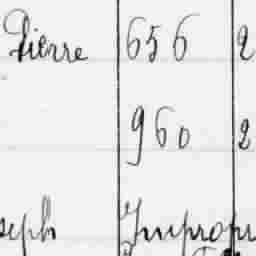 Pierre 656 2
960 2
seph Impropr